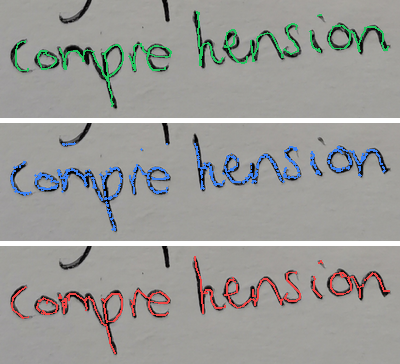 compre hension
compre hension
compre hension